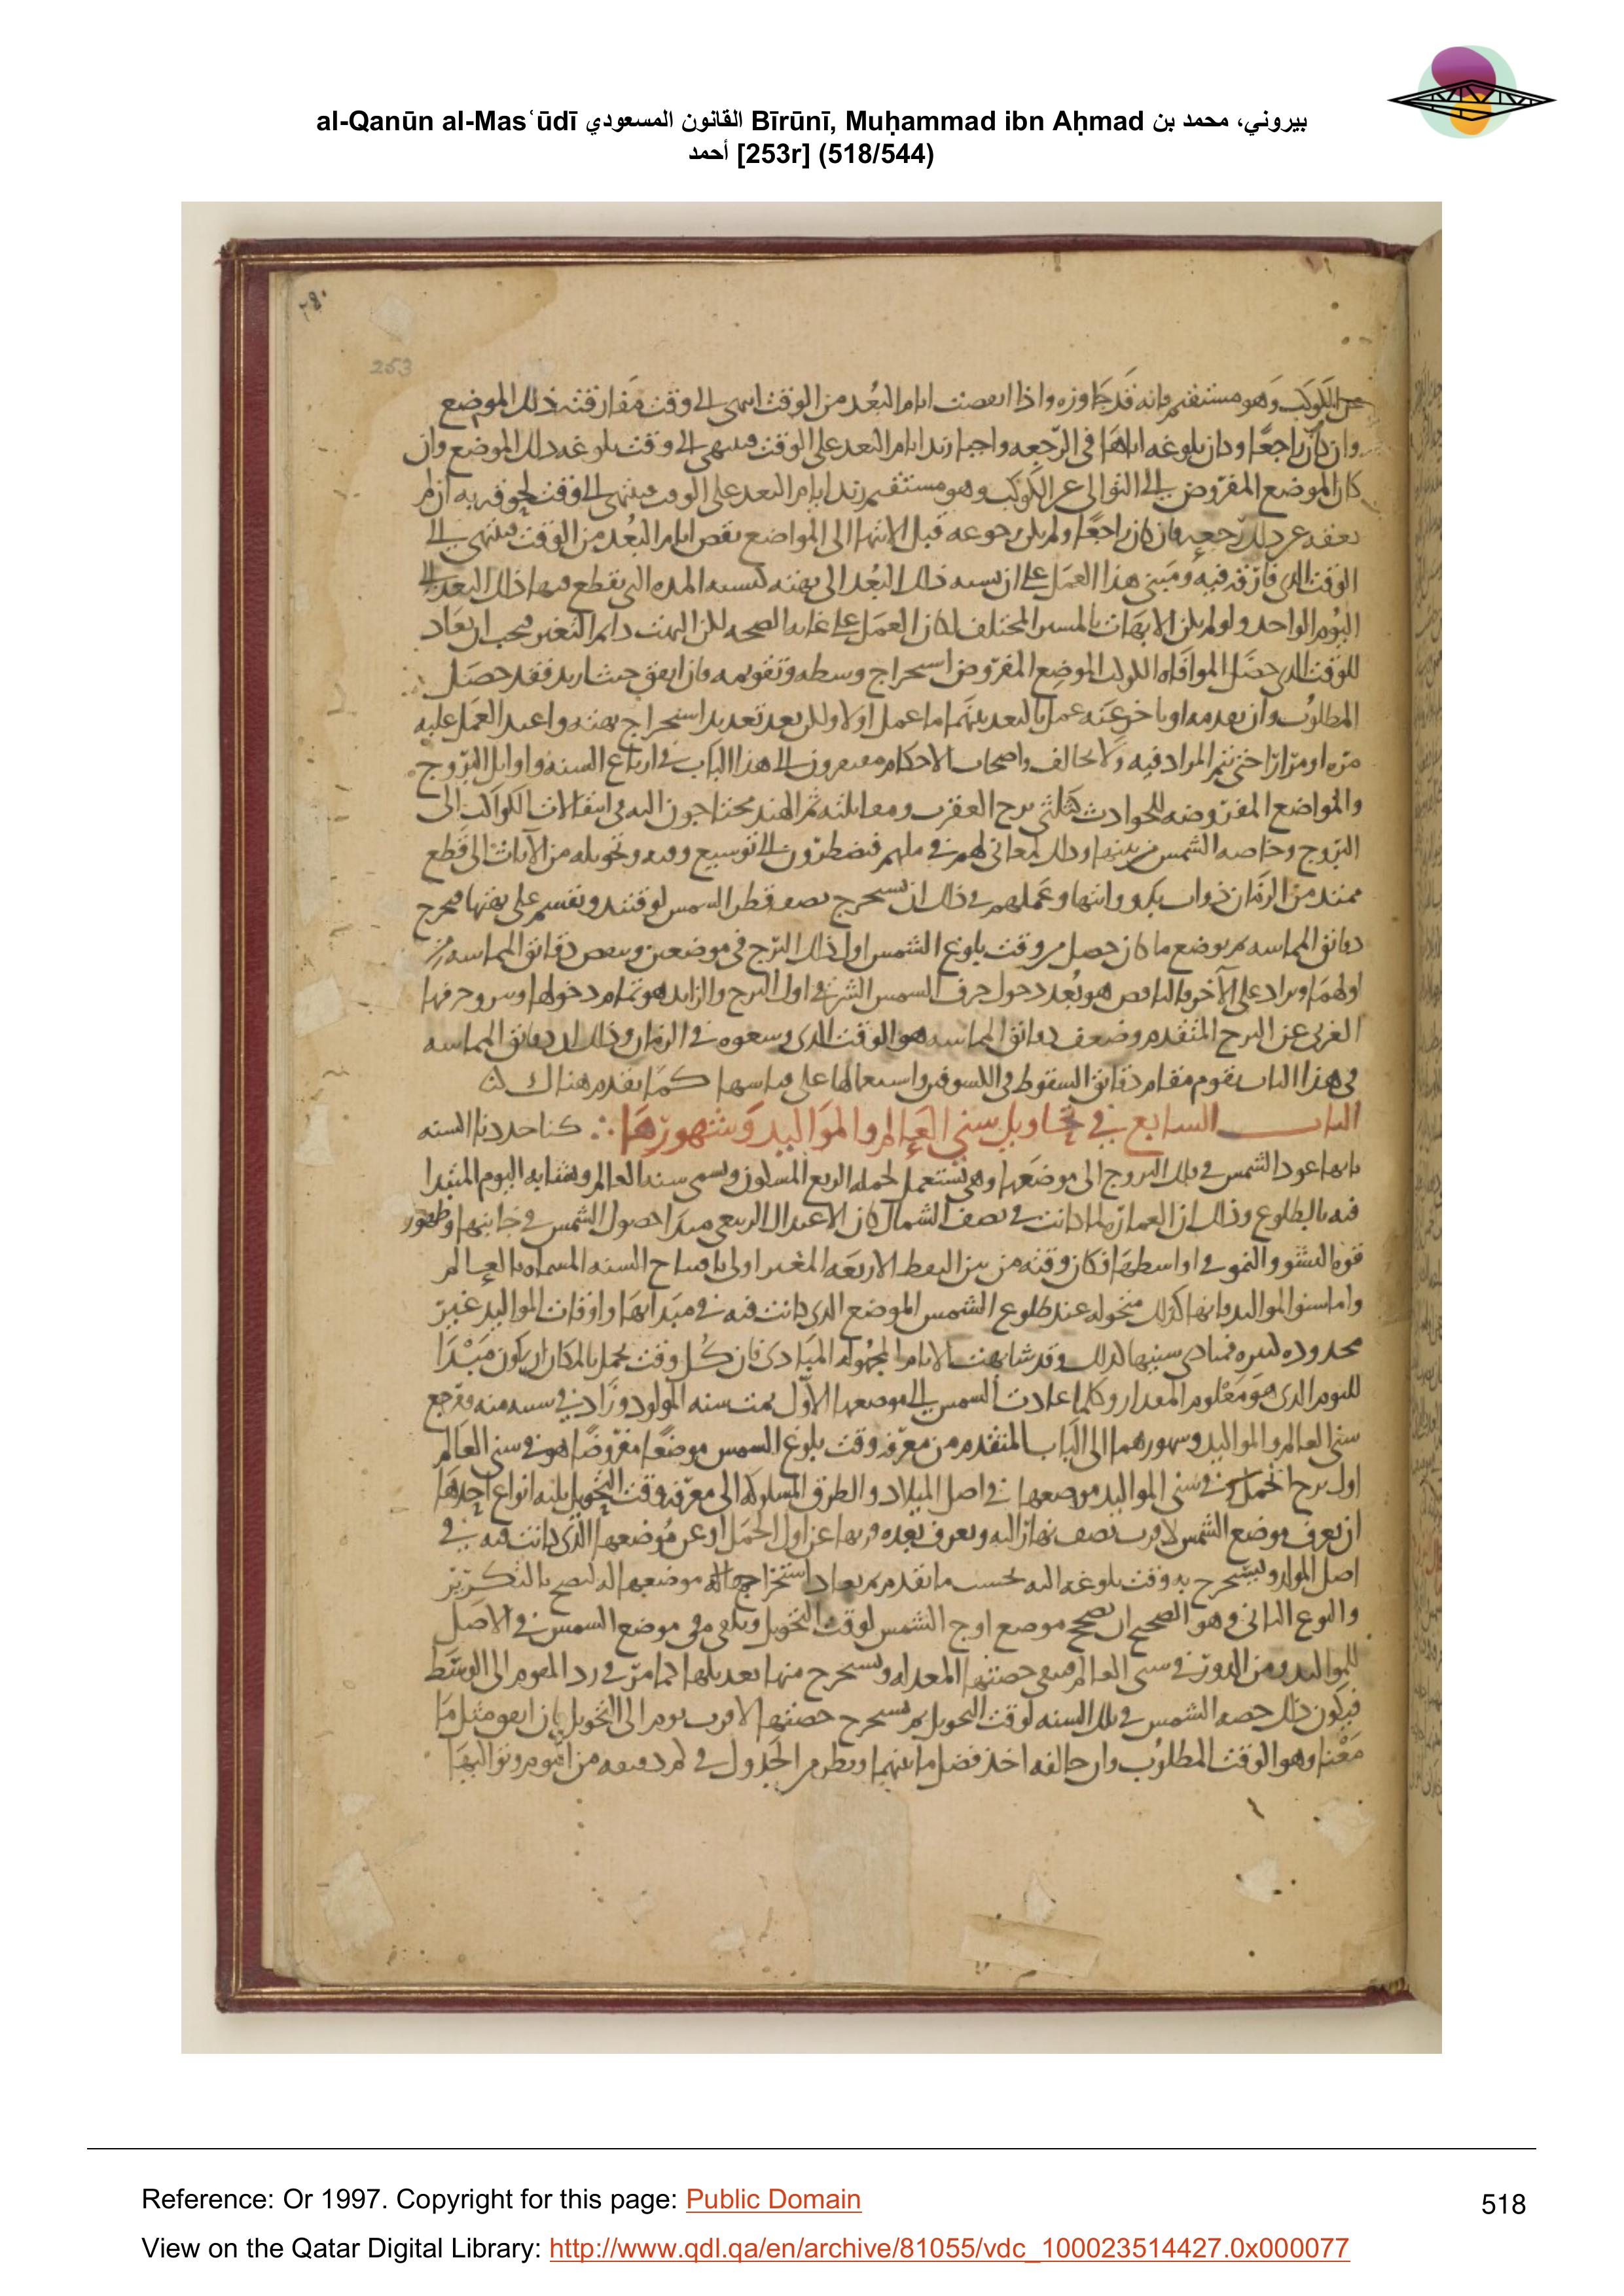 al-Qanūn al-Masʿūdī القانون المسعودي Bīrūnī, Muḥammad ibn Aḥmad بيروني، محمد بن
أحمد [253r] (518/544)
253
عن الكوكب وهو مستقيم فانه قد جاوزه واذا انقصت ايام البعد من الوقت انتهى الى وقت مفارقته ذلك الموضع
وان كان راجعا وكان بلوغه اياها فى الرجعه واجبا زيد ايام البعد على الوقت فينتهى الى وقت بلوغه ذلك الموضع وان
كان الموضع المفروض الى التوالى عن الكوكب وهو مستقيم زيد ايام البعد على الوقت فينتهى الى وقت لحوقه به ان لم
فان كان راجعا ولم يكن رجوعه قبل الانتها الى المواضع نقص ايام البعد من الوقت فينتهى الى
الوقت الذى فارقه فيه ومبنى هذا العمل على ان نسبه ذلك البعد الى بهته كنسبه المده التى يقطع فيها ذلك البعد الى
اليوم الواحد ولو لم يكن الابهات بالمسير المختلف لكان العمل على غايه الصحه لكن البهت دايم التغير فيجب ان يعاد
للوقت الذى حصل لموافاه الكوكب الموضع المفروض استخراج وسطه وتقويمه فان اتفق حيث اريد فقد حصل
المطلوب وان تقدمه او تاخر عنه عمل بالبعد بينهما ما عمل اولا ولكن بعد تجديد استخراج بهته واعيد العمل عليه
مره او مرارا حتى يتم المراد فيه ولا يخالف واصحاب الاحكام مفتقرون الى هذا الباب فى ارباع السنه واوايل البروج
والمواضع المفروضه للحوادث كثلثى برج العقرب ومقابلته ثم الهند محتاجون اليه فى انتقالات الكواكب الى
البروج وخاصه الشمس من بينها وذلك لمعانى لهم فى ملتهم فيضطرون الى توسيع وقته وتحويله من الآنات الى قطع
ممتد من الزمان ذوات بدو وانتها وعملهم فى ذلك ان يستخرج نصف قطر الشمس لوقتئذ ويقسم على بهتها فيخرج
دقائق المماسه ثم يوضع ما كان حصل من وقت بلوغ الشمس اول ذلك البرج فى موضعين وينقص دقائق المماسه من
اولهما ويزاد على الآخر فالناقص هو بُعد دخول جرف الشمس الشرقى اول البرج والزايد هو تمام دخولها وخروج حرفها
الغربى عن البرج المتقدم وضعف دقائق المماسه هو الوقت الذى وسعوه فى الزمان وذلك ان دقائق المماسه
فى هذا الباب تقوم مقام دقائق السقوط فى الكسوفين واستعمالها على قياسها كما تقدم هناك
الباب السابع في تحاويل سني العالم والمواليد وشهورها كنا حددنا السنه
بانها عود الشمس فى فلك البروج الى موضعها وهى تستعمل لجمله الربع المسكون وتسمى سنه العالم ويشابه اليوم المبتدا
فيه بالطلوع وذلك ان العماره لما كانت فى نصف الشمال كان الاعتدال الربيعى مبدا حصول الشمس فى جانبها وظهور
قوه النشو والنمو فى اواسطها فكان وقته من بين النقط الاربعه المغير اولى بافتتاح السنه المسماه بالعالم
واما سنو المواليد فانها كذلك متحوله عند طلوع الشمس الموضع الذى كانت فيه فى مبدايها واوقات المواليد غير
محدوده كثيره فمبادى سنيها كذلك وقد شابهت الايام المجهوله المبادى فان كل وقت يحمل بالمكان ان يكون مبدا
لليوم الذى هو معلوم المقدار وكلما عادت الشمس الى موضعها الاول تمت سنه المولود وزاد فى سنه منه فمرجع
سنى العالم والمواليد وشهورهما الى الباب المتقدم من معرفه وقت بلوغ الشمس موضعا مفروضا هو فى سنى العالم
اول برج الحمل وفى سنى المواليد موضعها فى اصل الميلاد والطرق المسلوكه الى معرفه وقت التحويل ثلثه انواع احدها
ان يعرف موضع الشمس لاقرب نصف نهار اليه ويعرف بعده وبها عن اول الحمل او عن موضعها الذى كانت فيه فى
اصل المولد ويستخرج به وقت بلوغه اليه بحسب ما تقدم ثم يعاد استخراجها الى موضعها اليه ليصح بالتكرير
والنوع الثانى وهو الصحيح ان يصحح موضع اوج الشمس لوقت التحويل ويلقى من موضع الشمس فى الاصل
للمواليد ومن الدور فى سنى العالم فيبقى حصتها المعدله ويستخرج منها تعديلها كما مر فى رد المقوم الى الوسط
فيكون ذلك حصه الشمس فى تلك السنه لوقت التحويل ثم يستخرج حصتها لاقرب يوم الى التحويل فان اتفق مثل ما
معنا وهو الوقت المطلوب وان خالفه اخذ فضل ما بينهما وينظر من الجدول فى كم دقيقه من اليوم
Reference: Or 1997. Copyright for this page: Public Domain
518
View on the Qatar Digital Library: http://www.qdl.qa/en/archive/81055/vdc_100023514427.0x000077